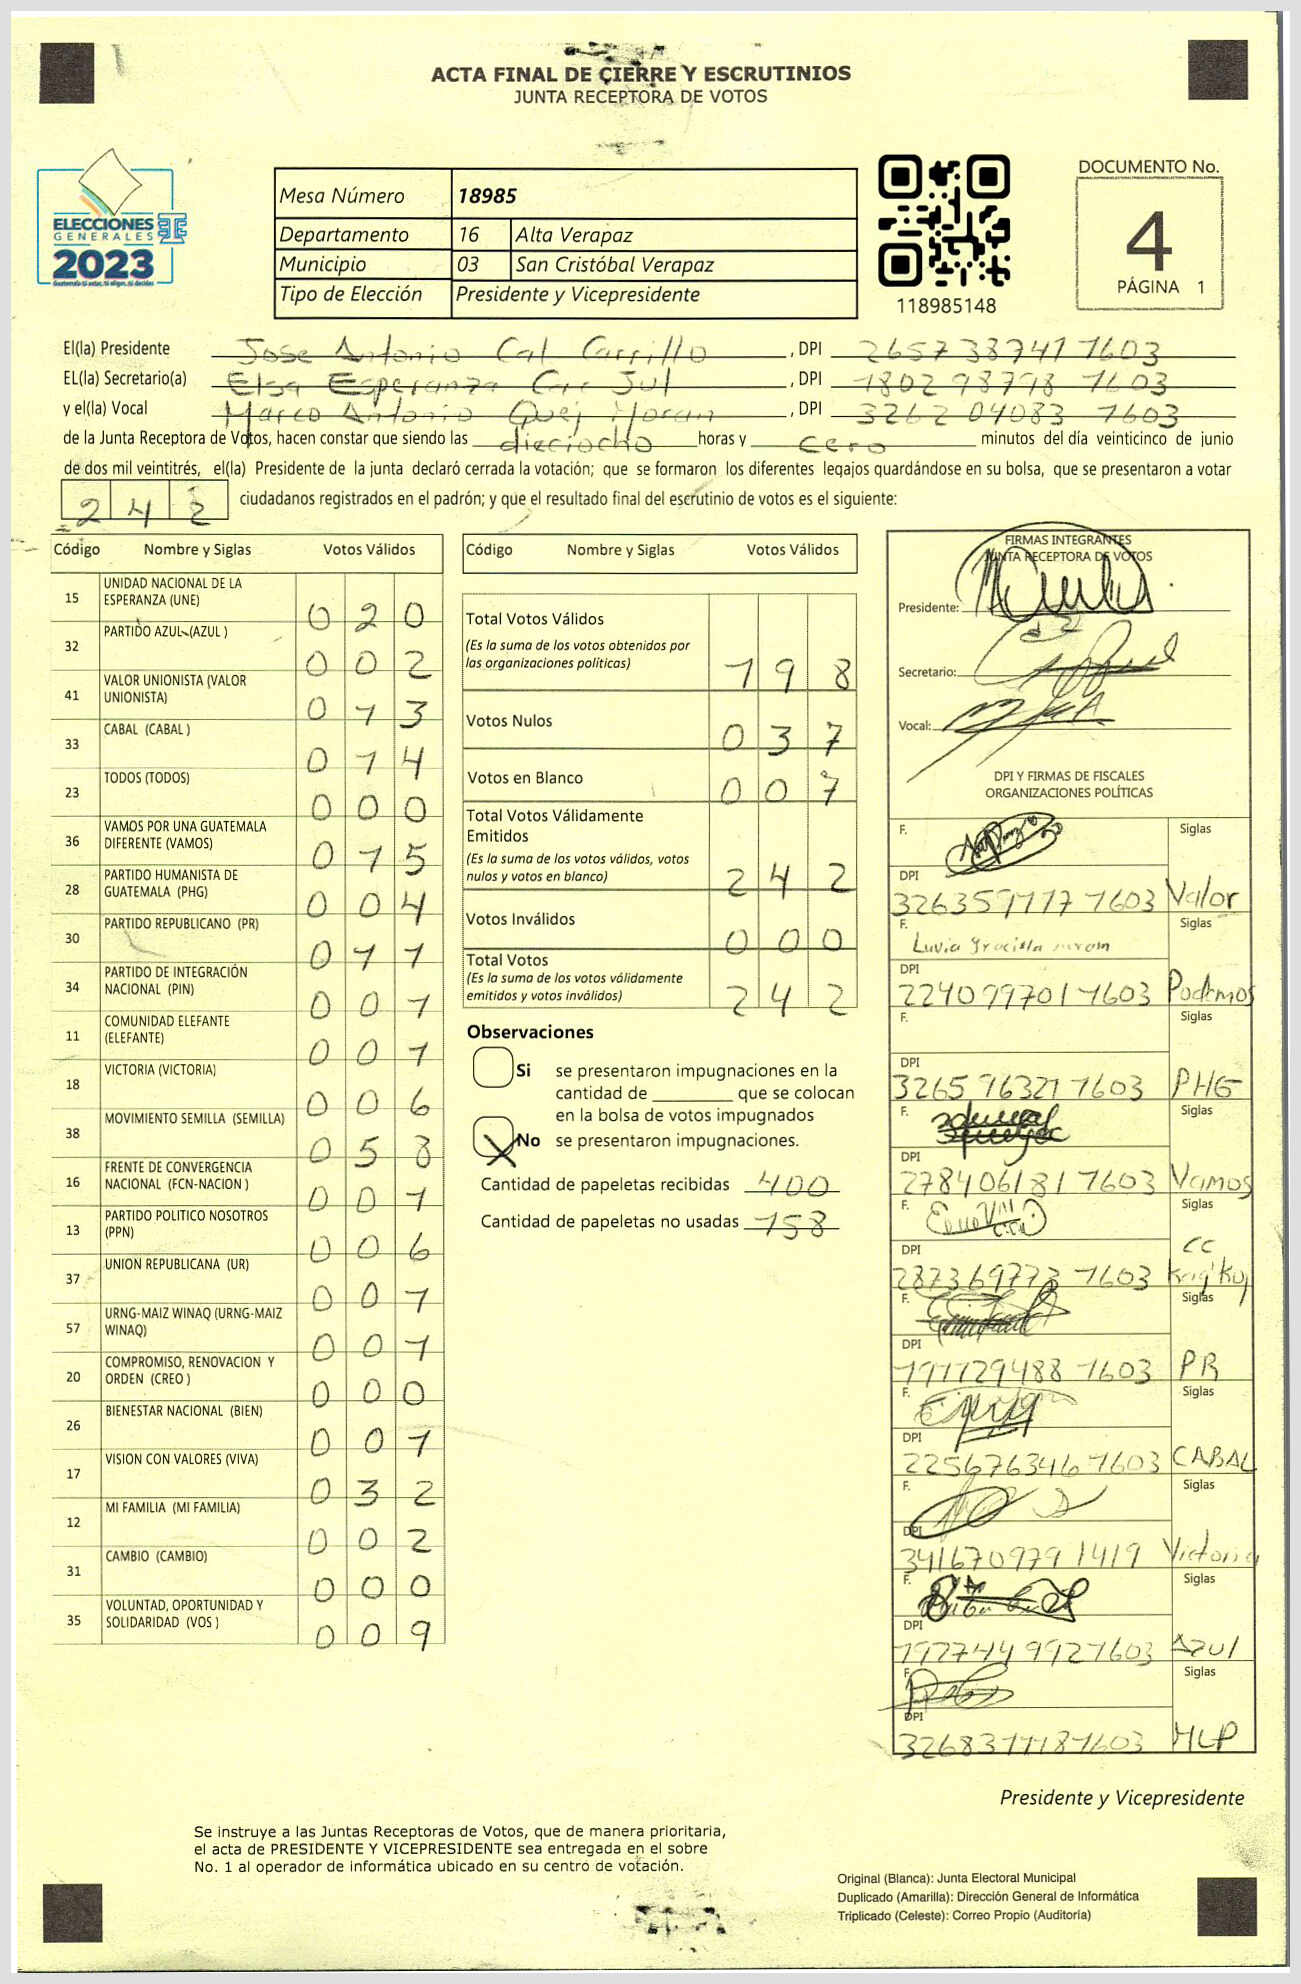 ACTA FINAL DE CIERRE Y ESCRUTINIOS
JUNTA RECEPTORA DE VOTOS
ELECCIONES
GENERALES
2023
Guatemala tú votas, tú eliges, tú decides
Mesa Número 18985
Departamento 16 Alta Verapaz
Municipio 03 San Cristóbal Verapaz
Tipo de Elección Presidente y Vicepresidente
118985148
DOCUMENTO No.
4
PÁGINA 1
El(la) Presidente Jose Antonio Cal Carrillo , DPI 2657387411603
EL(la) Secretario(a) Elsa Esperanza Cac Jul , DPI 1802 98798 1603
y el(la) Vocal Marco Antonio Quej Moran , DPI 3262 04083 1603
de la Junta Receptora de Votos, hacen constar que siendo las dieciocho horas y cero minutos del día veinticinco de junio
de dos mil veintitrés, el(la) Presidente de la junta declaró cerrada la votación; que se formaron los diferentes legajos quardándose en su bolsa, que se presentaron a votar
242 ciudadanos registrados en el padrón; y que el resultado final del escrutinio de votos es el siguiente:
Código Nombre y Siglas Votos Válidos
15 UNIDAD NACIONAL DE LA ESPERANZA (UNE) 020
32 PARTIDO AZUL (AZUL ) 002
41 VALOR UNIONISTA (VALOR UNIONISTA) 013
33 CABAL (CABAL ) 014
23 TODOS (TODOS) 000
36 VAMOS POR UNA GUATEMALA DIFERENTE (VAMOS) 015
28 PARTIDO HUMANISTA DE GUATEMALA (PHG) 004
30 PARTIDO REPUBLICANO (PR) 011
34 PARTIDO DE INTEGRACIÓN NACIONAL (PIN) 001
11 COMUNIDAD ELEFANTE (ELEFANTE) 001
18 VICTORIA (VICTORIA) 006
38 MOVIMIENTO SEMILLA (SEMILLA) 058
16 FRENTE DE CONVERGENCIA NACIONAL (FCN-NACION ) 001
13 PARTIDO POLITICO NOSOTROS (PPN) 006
37 UNION REPUBLICANA (UR) 001
57 URNG-MAIZ WINAQ (URNG-MAIZ WINAQ) 001
20 COMPROMISO, RENOVACION Y ORDEN (CREO ) 000
26 BIENESTAR NACIONAL (BIEN) 001
17 VISION CON VALORES (VIVA) 032
12 MI FAMILIA (MI FAMILIA) 002
31 CAMBIO (CAMBIO) 000
35 VOLUNTAD, OPORTUNIDAD Y SOLIDARIDAD (VOS ) 009
Código Nombre y Siglas Votos Válidos
Total Votos Válidos 198
(Es la suma de los votos obtenidos por
las organizaciones políticas)
Votos Nulos 037
Votos en Blanco 007
Total Votos Válidamente
Emitidos 242
(Es la suma de los votos válidos, votos
nulos y votos en blanco)
Votos Inválidos 000
Total Votos 242
(Es la suma de los votos válidamente
emitidos y votos inválidos)
Observaciones
Si se presentaron impugnaciones en la
cantidad de ________ que se colocan
en la bolsa de votos impugnados
X No se presentaron impugnaciones.
Cantidad de papeletas recibidas 400
Cantidad de papeletas no usadas 158
FIRMAS INTEGRANTES
JUNTA RECEPTORA DE VOTOS
Presidente:
Secretario:
Vocal:
DPI Y FIRMAS DE FISCALES
ORGANIZACIONES POLÍTICAS
F. Siglas
DPI
1603 Valor
F. Luvia Siglas
DPI
2240997011603 Podemos
F. Siglas
DPI
3265963211603 PHG
F. Siglas
DPI
2784061811603 Vamos
F. Siglas
DPI CC
2873697731603
F. Siglas
DPI
1911294881603 PR
F. Siglas
DPI
2256763461603 CABAL
F. Siglas
DPI
3416709791419 Victoria
F. Siglas
DPI
1927449921603 Azul
F. Siglas
DPI
3268311181603 MLP
Presidente y Vicepresidente
Se instruye a las Juntas Receptoras de Votos, que de manera prioritaria,
el acta de PRESIDENTE Y VICEPRESIDENTE sea entregada en el sobre
No. 1 al operador de informática ubicado en su centro de votación.
Original (Blanca): Junta Electoral Municipal
Duplicado (Amarilla): Dirección General de Informática
Triplicado (Celeste): Correo Propio (Auditoría)